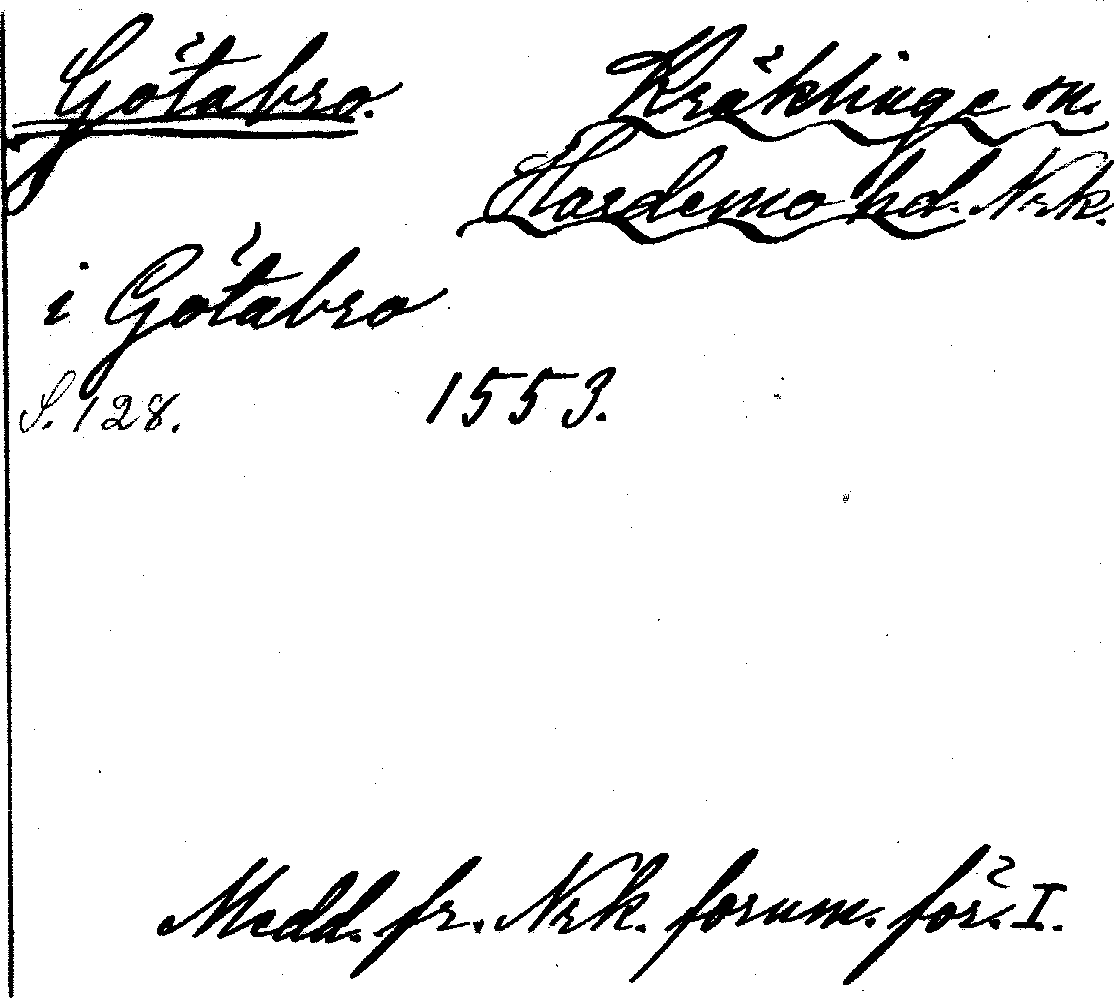 Götabro.
Kräklinge sn.
Hardemo hd. Nrk.
i Götabro
S. 128. 1553.
Medd. fr. Nrk. fornm. för. I.